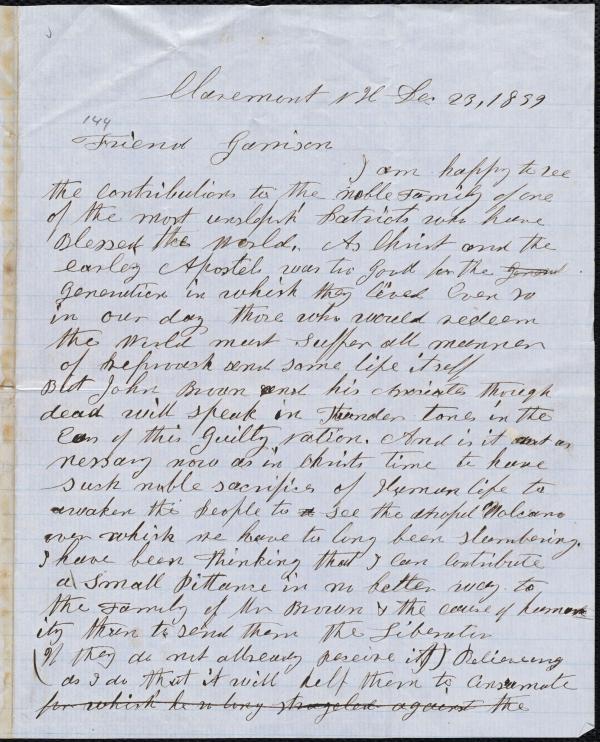 Claremont N H Dec 23, 1859
144
Friend Garrison
I am happy to see
the contributions to the noble Family of one
of the most unselfish Patriots who have
Blessed the World. As Christ and the
earley Apostels was to Good for the
Generation in which they lived Even so
in our day those who would redeem
the World must suffer all manner
of Reproach and some life itself
But John Brown and his Asociates though
dead will speak in Thunder tones in the
Ears of this Guilty Nation. And is it not as
nessary now as in Christs time to have
such noble sacrifices of Human life to
awaken the People to see the Volcano
over which we have to long been slumbering.
I have been thinking that I can contribute
a Small Pittance in no better way to
the Family of Mr Brown & the cause of human
ity then to send them the Liberator
(if they do not allready receive it) Believeing
as I do that it will help them to Consumate
for which he so long strugeled against the